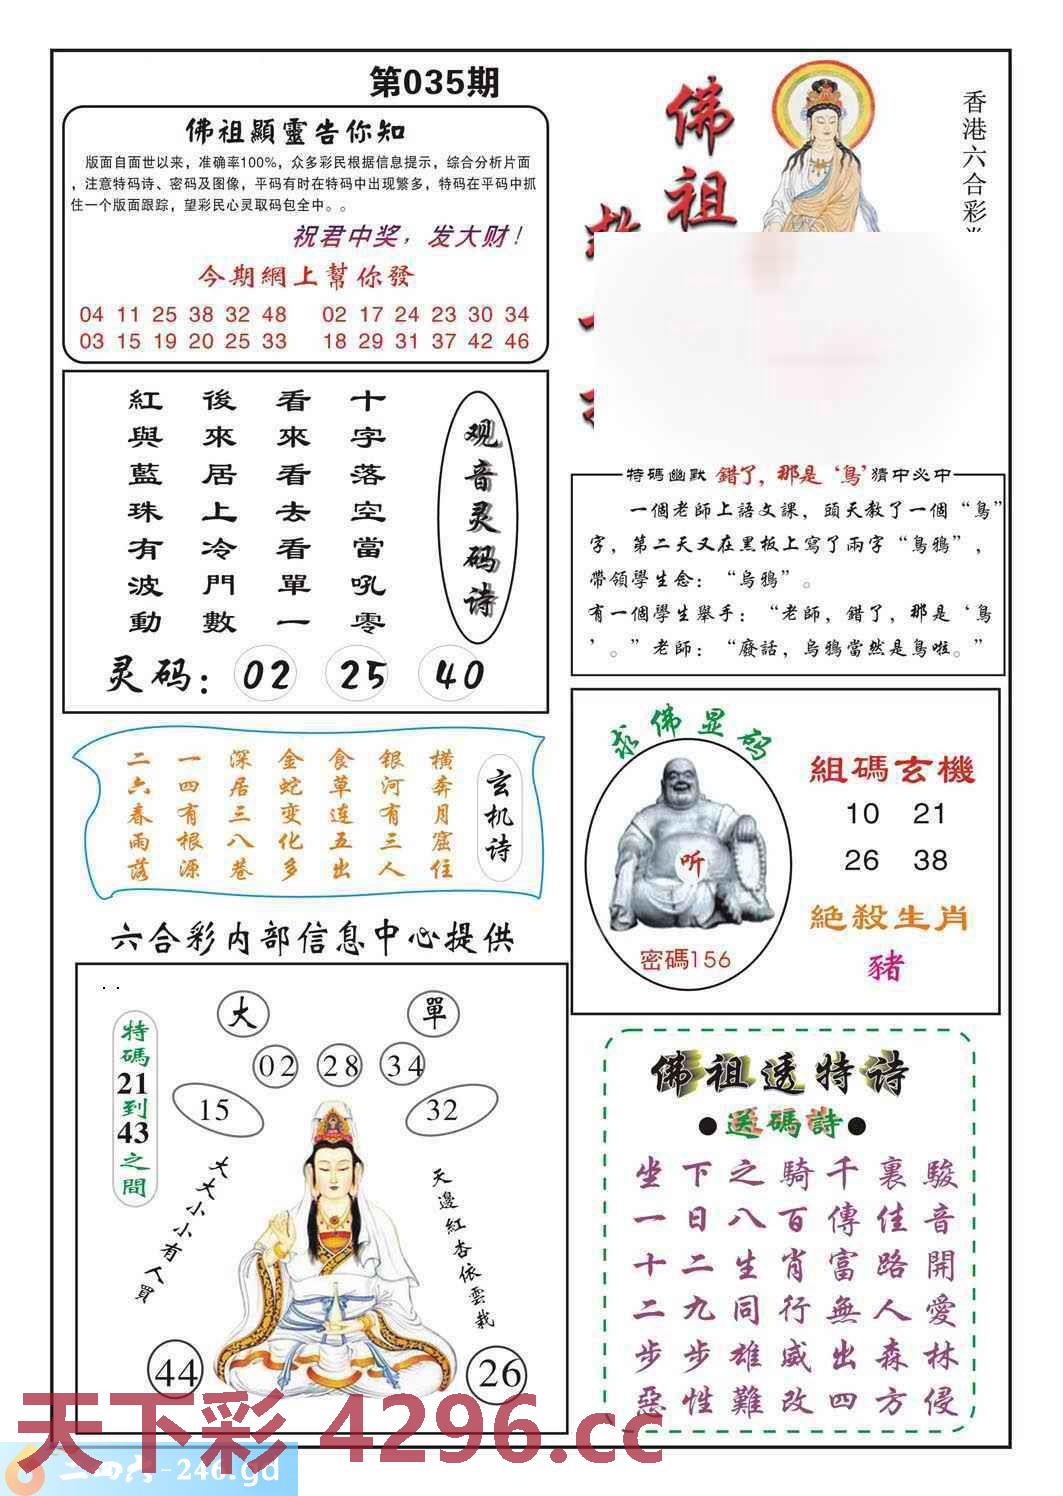 第035期
佛祖顯靈告你知
版面自面世以来，准确率100%，众多彩民根据信息提示，综合分析片面
，注意特码诗、密码及图像，平码有时在特码中出现繁多，特码在平码中抓
住一个版面跟踪，望彩民心灵取码包全中。。
祝君中奖，发大财！
今期網上幫你發
04 11 25 38 32 48 02 17 24 23 30 34
03 15 19 20 25 33 18 29 31 37 42 46
佛祖
香港六合彩
观音灵码诗
十字落空當吼零
看來看去看單一
後來居上冷門數
紅與藍珠有波動
灵码：02 25 40
特碼幽默 錯了，那是‘鳥’猜中必中
一個老師上語文課，頭天教了一個“鳥”
字，第二天又在黑板上寫了兩字“鳥鴉”，
帶領學生念：“烏鴉”。
有一個學生舉手：“老師，錯了，那是‘鳥
’。”老師：“廢話，烏鴉當然是鳥啦。”
玄机诗
橫奔月窟住
银河有三人
食草连五出
金蛇变化多
深居三八巷
一四有根源
二六春雨落
求佛显码
听
密碼156
組碼玄機
10 21
26 38
絕殺生肖
豬
六合彩内部信息中心提供
特碼21到43之間
大 單
02 28 34
15 32
大大小小有人買
天邊紅杏依雲栽
44 26
佛祖透特诗
●送碼詩●
坐下之騎千裏駿
一日八百傳佳音
十二生肖富路開
二九同行無人愛
步步雄威出森林
惡性難改四方侵
天下彩 4296.cc
二四六-246.gd